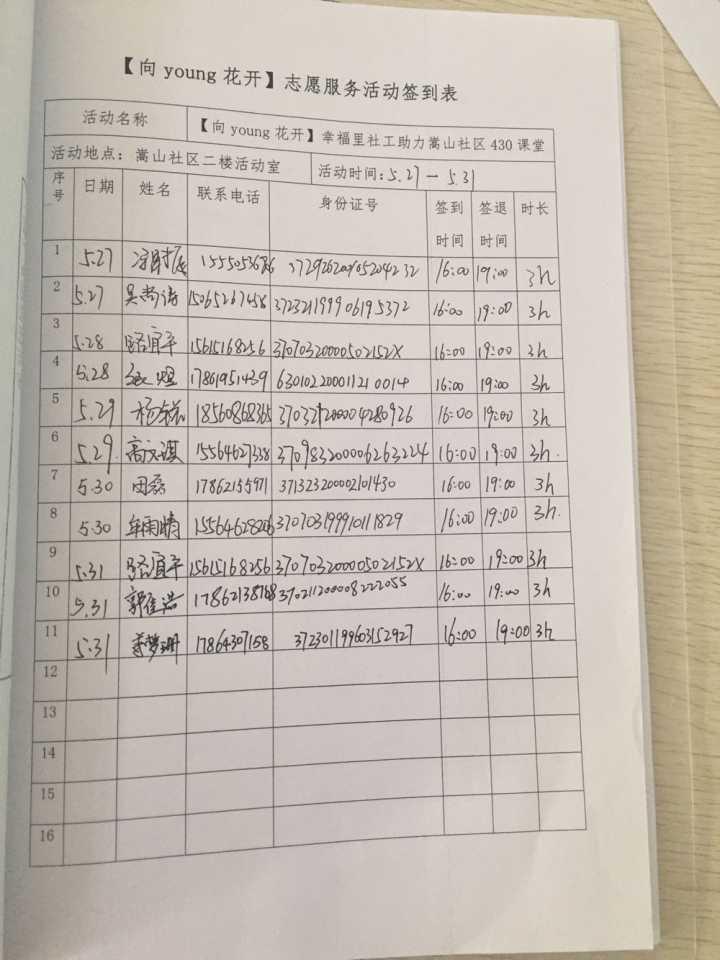 【向 young 花开】志愿服务活动签到表
活动名称 【向 young 花开】幸福里社工助力嵩山社区 430 课堂
活动地点：嵩山社区二楼活动室 活动时间：5.27 — 5.31
序号 日期 姓名 联系电话 身份证号 签到时间 签退时间 时长
1 5.27 16:00 19:00 3h
2 5.27 吴尚涛 15065267458 16:00 19:00 3h
3 5.28 宜平 15615168256 37070320000502152X 16:00 19:00 3h
4 5.28 17861951439 630102200011210014 16:00 19:00 3h
5 5.29 杨 18560868365 16:00 19:00 3h
6 5.29 高文淇 15564627338 370983200006263224 16:00 19:00 3h.
7 5.30 田磊 17862155971 371323200002101430 16:00 19:00 3h
8 5.30 牟雨晴 370703199910111829 16:00 19:00 3h.
9 5.31 宜平 15615168256 37070320000502152X 16:00 19:00 3h
10 5.31 郭佳浩 370211200008222055 16:00 19:00 3h
11 5.31 梦珊 17864307158 372301199603152927 16:00 19:00 3h
12
13
14
15
16